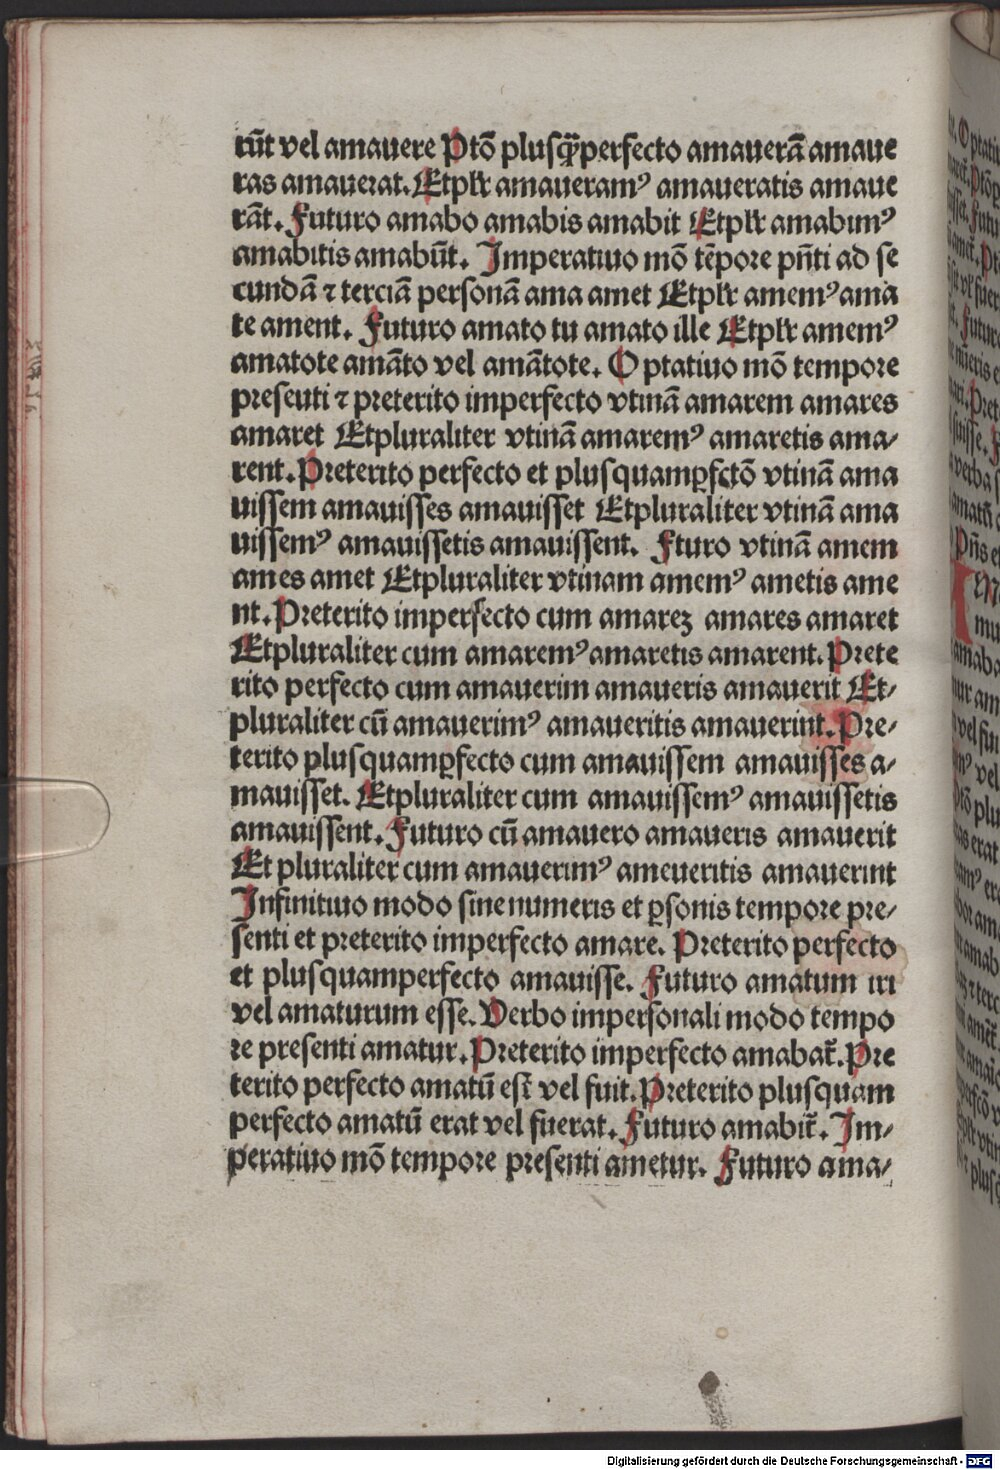 rūt vel amauere Ptō plusq̄perfecto amauerā amaue
ras amauerat. Etplr̄ amaueramꝰ amaueratis amaue
rāt. Futuro amabo amabis amabit Etplr̄ amabimꝰ
amabitis amabūt. Imperatiuo mō tēpore pn̄ti ad se
cundā ⁊ terciā personā ama amet Etplr̄ amemꝰ ama
te ament. Futuro amato tu amato ille Etplr̄ amemꝰ
amatote amāto vel amātote. Optatiuo mō tempore
presenti ⁊ preterito imperfecto vtinā amarem amares
amaret Etpluraliter vtinā amaremꝰ amaretis ama⸗
rent. Preterito perfecto et plusquamꝑfctō vtinā ama
uissem amauisses amauisset Etpluraliter vtinā ama
uissemꝰ amauissetis amauissent. Fturo vtinā amem
ames amet Etpluraliter vtinam amemꝰ ametis ame
nt. Preterito imperfecto cum amarez amares amaret
Etpluraliter cum amaremꝰ amaretis amarent. Prete
rito perfecto cum amauerim amaueris amauerit Et⸗
pluraliter cū amauerimꝰ amaueritis amauerint. Pre⸗
terito plusquamꝑfecto cum amauissem amauisses a⸗
mauisset. Etpluraliter cum amauissemꝰ amauissetis
amauissent. Futuro cū amauero amaueris amauerit
Et pluraliter cum amauerimꝰ ameueritis amauerint
Infinitiuo modo sine numeris et ꝑsonis tempore pre⸗
senti et preterito imperfecto amare. Preterito perfecto
et plusquamperfecto amauisse. Futuro amatum iri
vel amaturum esse. Verbo impersonali modo tempo
re presenti amatur. Preterito imperfecto amabat̄. Pre
terito perfecto amatū est vel fuit. Preterito plusquam
perfecto amatū erat vel fuerat. Futuro amabit̄. Im⸗
peratiuo mō tempore presenti ametur. Futuro ama⸗
Digitalisierung gefördert durch die Deutsche Forschungsgemeinschaft - DFG